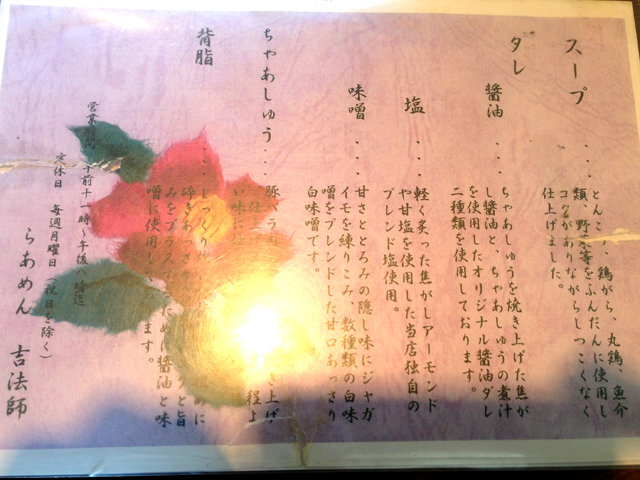 スープ
・・・とんこつ、鶏がら、丸鶏、魚介
類、野菜等をふんだんに使用し
コクがありながらしつこくなく
仕上げました。
タレ
醬油・・・ちゃあしゅうを焼き上げた焦が
し醬油と、ちゃあしゅうの煮汁
を使用したオリジナル醬油ダレ
二種類を使用しております。
塩・・・軽く炙った焦がしアーモンド
や甘塩を使用した当店独自の
ブレンド塩使用。
味噌・・・甘さととろみの隠し味にジャガ
イモを練りこみ、数種類の白味
噌をブレンドした甘口あっさり
白味噌です。
ちゃあしゅう・・・豚バラ
き上げ
仕上げ
程よ
い味に仕
背脂
・・・・じっくり
めに
砕きあっさり
と旨
みをプラスするために醬油と味
噌に使用し
ます。
営業時間 午前十一時〜午後八時迄
定休日 毎週月曜日(祝日を除く)
らあめん 吉法師